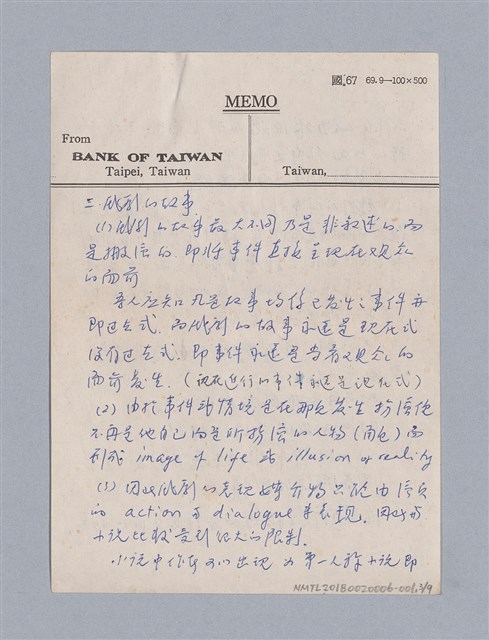 國.67 69.9—100×500
MEMO
From
BANK OF TAIWAN
Taipei, Taiwan
Taiwan,
三.戲劇的故事
(1)戲劇的故事最大不同乃是非敘述的,而
是搬演的.即將事件直接呈現在觀眾
的面前
吾人應知凡是故事均係已發生之事件亦
即過去式.而戲劇的故事永遠是現在式
沒有過去式.即事件永遠是當著觀眾的
面前發生.(現在進行的事件永遠是現在式)
(2)由於事件或情境是在那兒發生 扮演他
不再是他自己而是所扮演的人物(角色)而
形成 image of life 或 illusion of reality
(3)因此戲劇的表現媒介物只能由演員
的 action 與 dialogue 來表現.因此與
小說比較受到很大的限制.
小說中作者可以出現 如第一人稱小說 即
NMTL20180020006-006,3/9